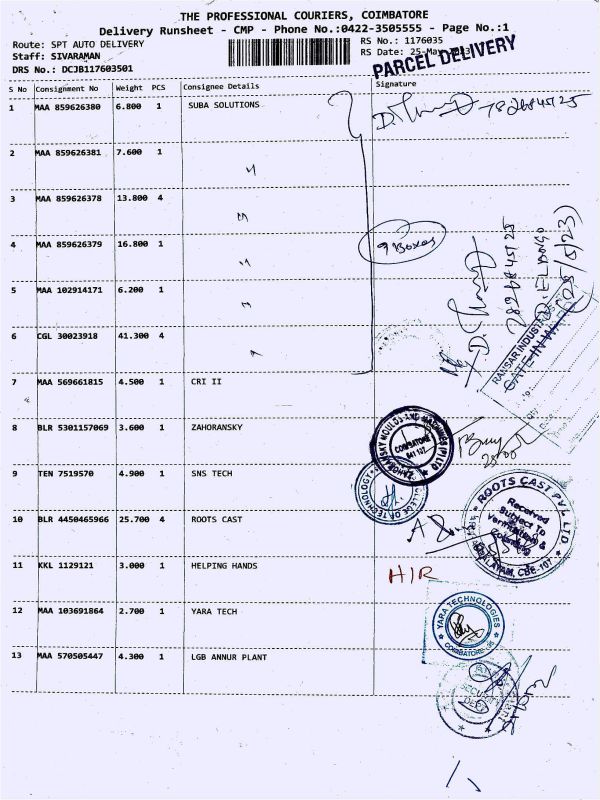 THE PROFESSIONAL COURIERS, COIMBATORE
Delivery Runsheet - CMP - Phone No.:0422-3505555 - Page No.:1
Route: SPT AUTO DELIVERY
RS No.: 1176035
Staff: SIVARAMAN
RS Date: 25-May
DRS No.: DCJB117603501
PARCEL DELIVERY
S No Consignment No Weight PCS Consignee Details Signature
1 MAA 859626380 6.800 1 SUBA SOLUTIONS
2 MAA 859626381 7.600 1
3 MAA 859626378 13.800 4
4 MAA 859626379 16.800 1
9 Boxes
5 MAA 102914171 6.200 1
6 CGL 30023918 41.300 4
(25/5/23)
RANSAR INDUSTRIES
GATE IN
7 MAA 569661815 4.500 1 CRI II
8 BLR 5301157069 3.600 1 ZAHORANSKY
ZAHORANSKY MOULDS AND MACHINES (P) LTD
COIMBATORE
641 107
9 TEN 7519570 4.900 1 SNS TECH
COLLEGE OF TECHNOLOGY
10 BLR 4450465966 25.700 4 ROOTS CAST
ROOTS CAST PVT LTD.
Received
Subject To
Verification &
Counting
PALAYAM, CBE-107
11 KKL 1129121 3.000 1 HELPING HANDS
H/R
12 MAA 103691864 2.700 1 YARA TECH
YARA TECHNOLOGIES
COIMBATORE
13 MAA 570505447 4.300 1 LGB ANNUR PLANT
SECURITY
DEPT